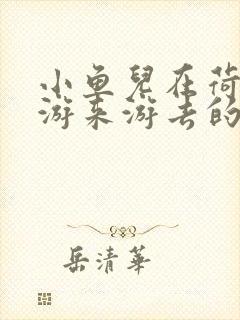 小鱼儿在荷
游来游去的
岳清華